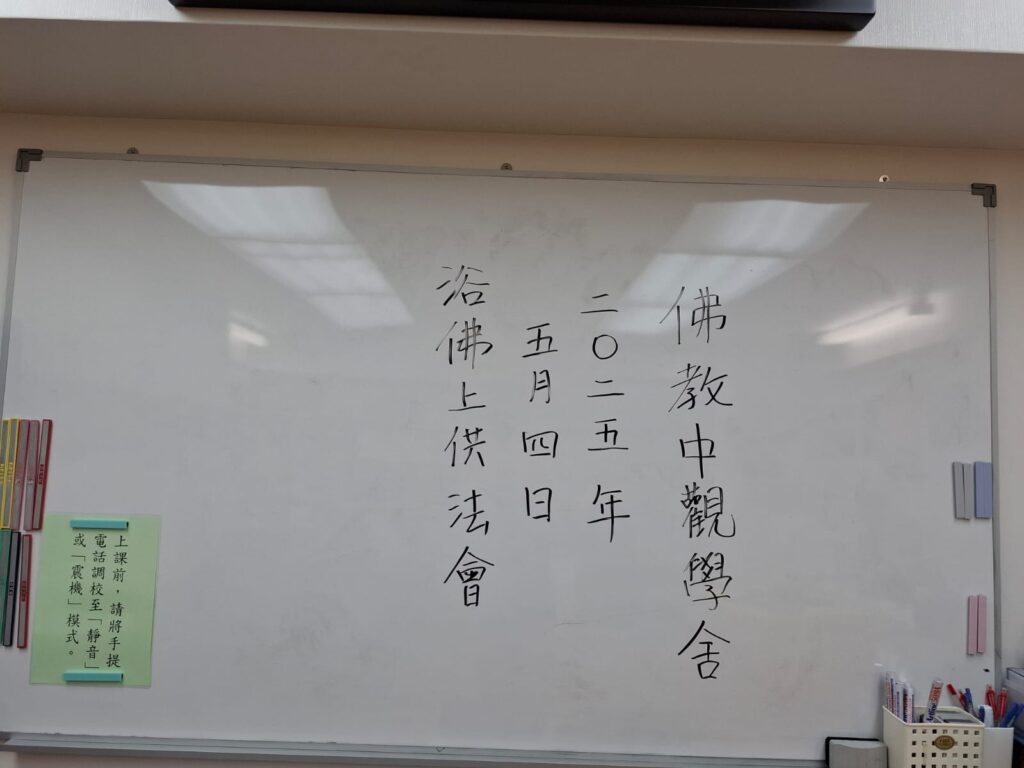 佛教中觀學舍
二〇二五年
五月四日
浴佛上供法會
上課前，請將手提
電話調校至「靜音」
或「震機」模式。